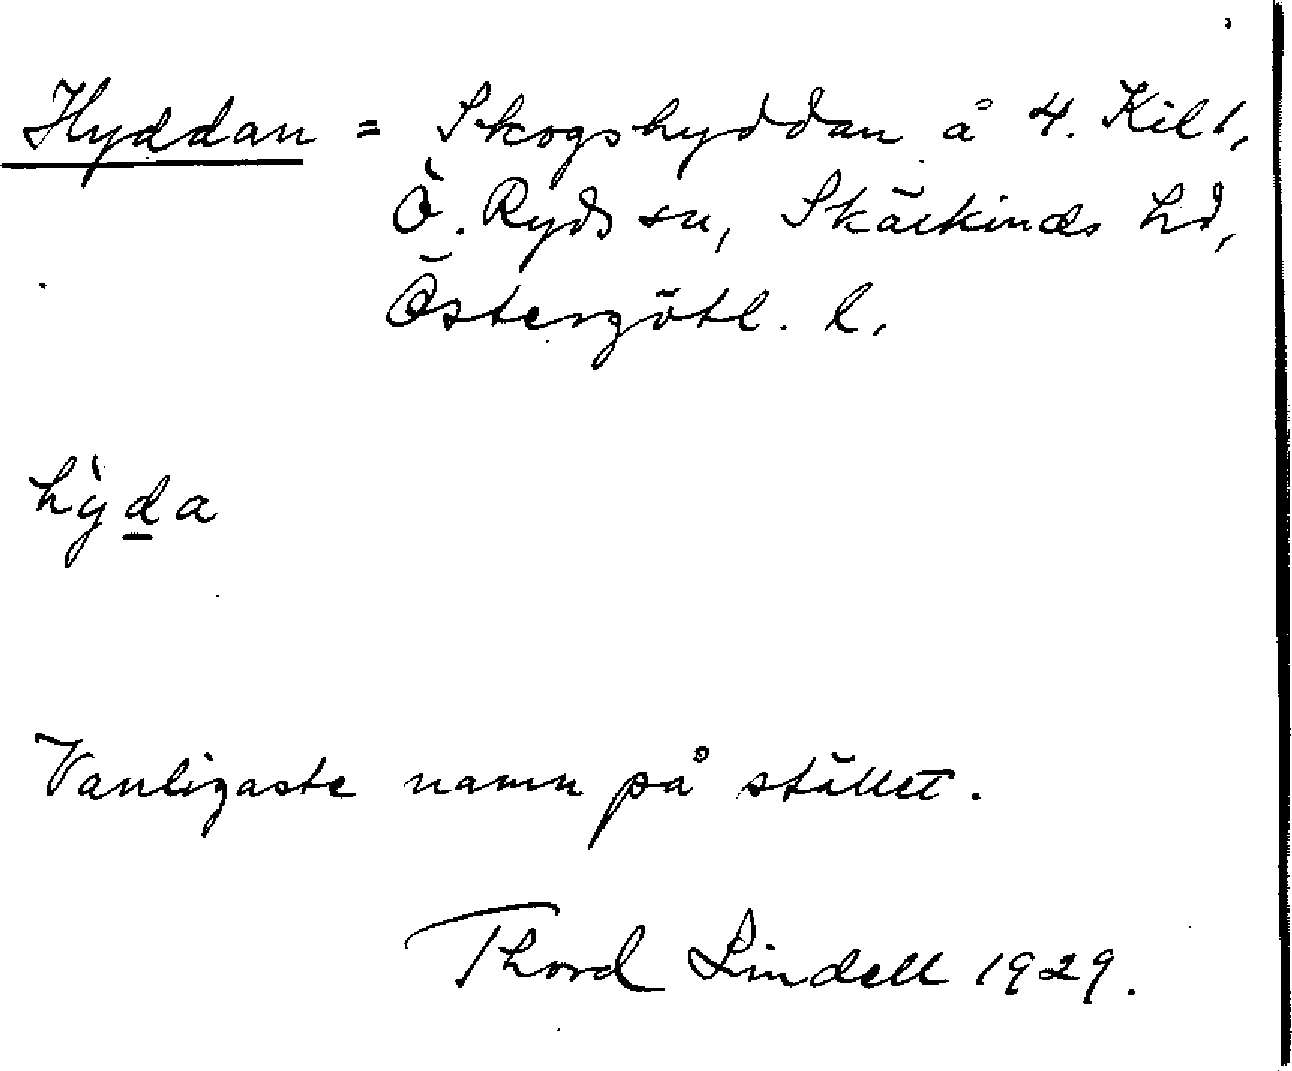 Hyddan = Skogshyddan å 4. Kil 1,
Ö. Ryds sn, Skärkinds hd,
Östergötl. l.
hỳda
Vanligaste namn på stället.
Thord Lindell 1929.